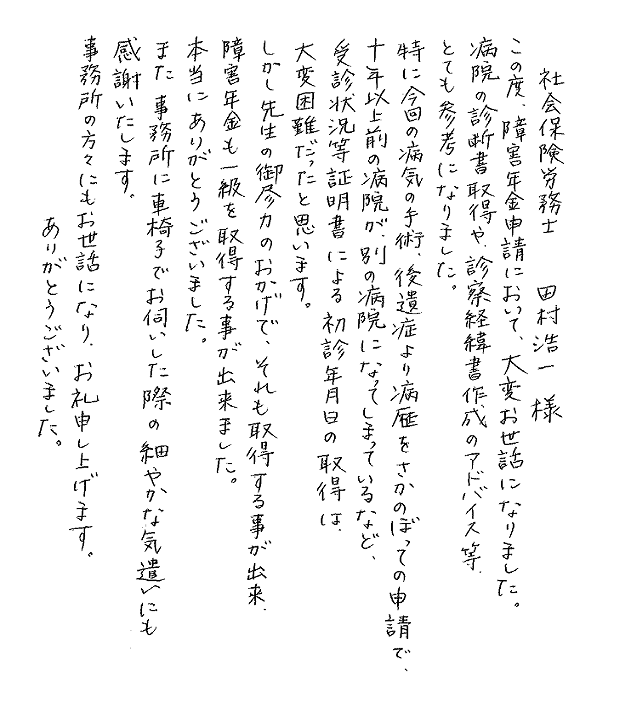 社会保険労務士　田村浩一様
この度、障害年金申請において、大変お世話になりました。
病院の診断書取得や、診察経緯書作成のアドバイス等、
とても参考になりました。
特に今回の病気の手術、後遺症より病歴をさかのぼっての申請で、
十年以上前の病院が、別の病院になってしまっているなど、
受診状況等証明書による初診年月日の取得は、
大変困難だったと思います。
しかし先生の御尽力のおかげで、それも取得する事が出来、
障害年金も一級を取得する事が出来ました。
本当にありがとうございました。
また事務所に車椅子でお伺いした際の細やかな気遣いにも
感謝いたします。
事務所の方々にもお世話になり、お礼申し上げます。
ありがとうございました。